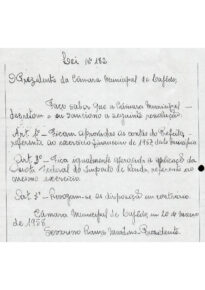 Lei Nº 182
O Presidente da Câmara Municipal de
Faço saber que a Câmara Municipal
decretou e eu sanciono a seguinte resolução:
Art. 1º - Ficam aprovadas as contas do Prefeito,
referente ao exercício financeiro de 1957, deste Município
Art. 2º - Fica igualmente aprovada a aplicação da
Quota Federal do Imposto de Renda, referente ao
mesmo exercício
Art. 3º - Revogam-se as disposição em contrário.
Câmara Municipal de em 20 de
de 1958
Presidente